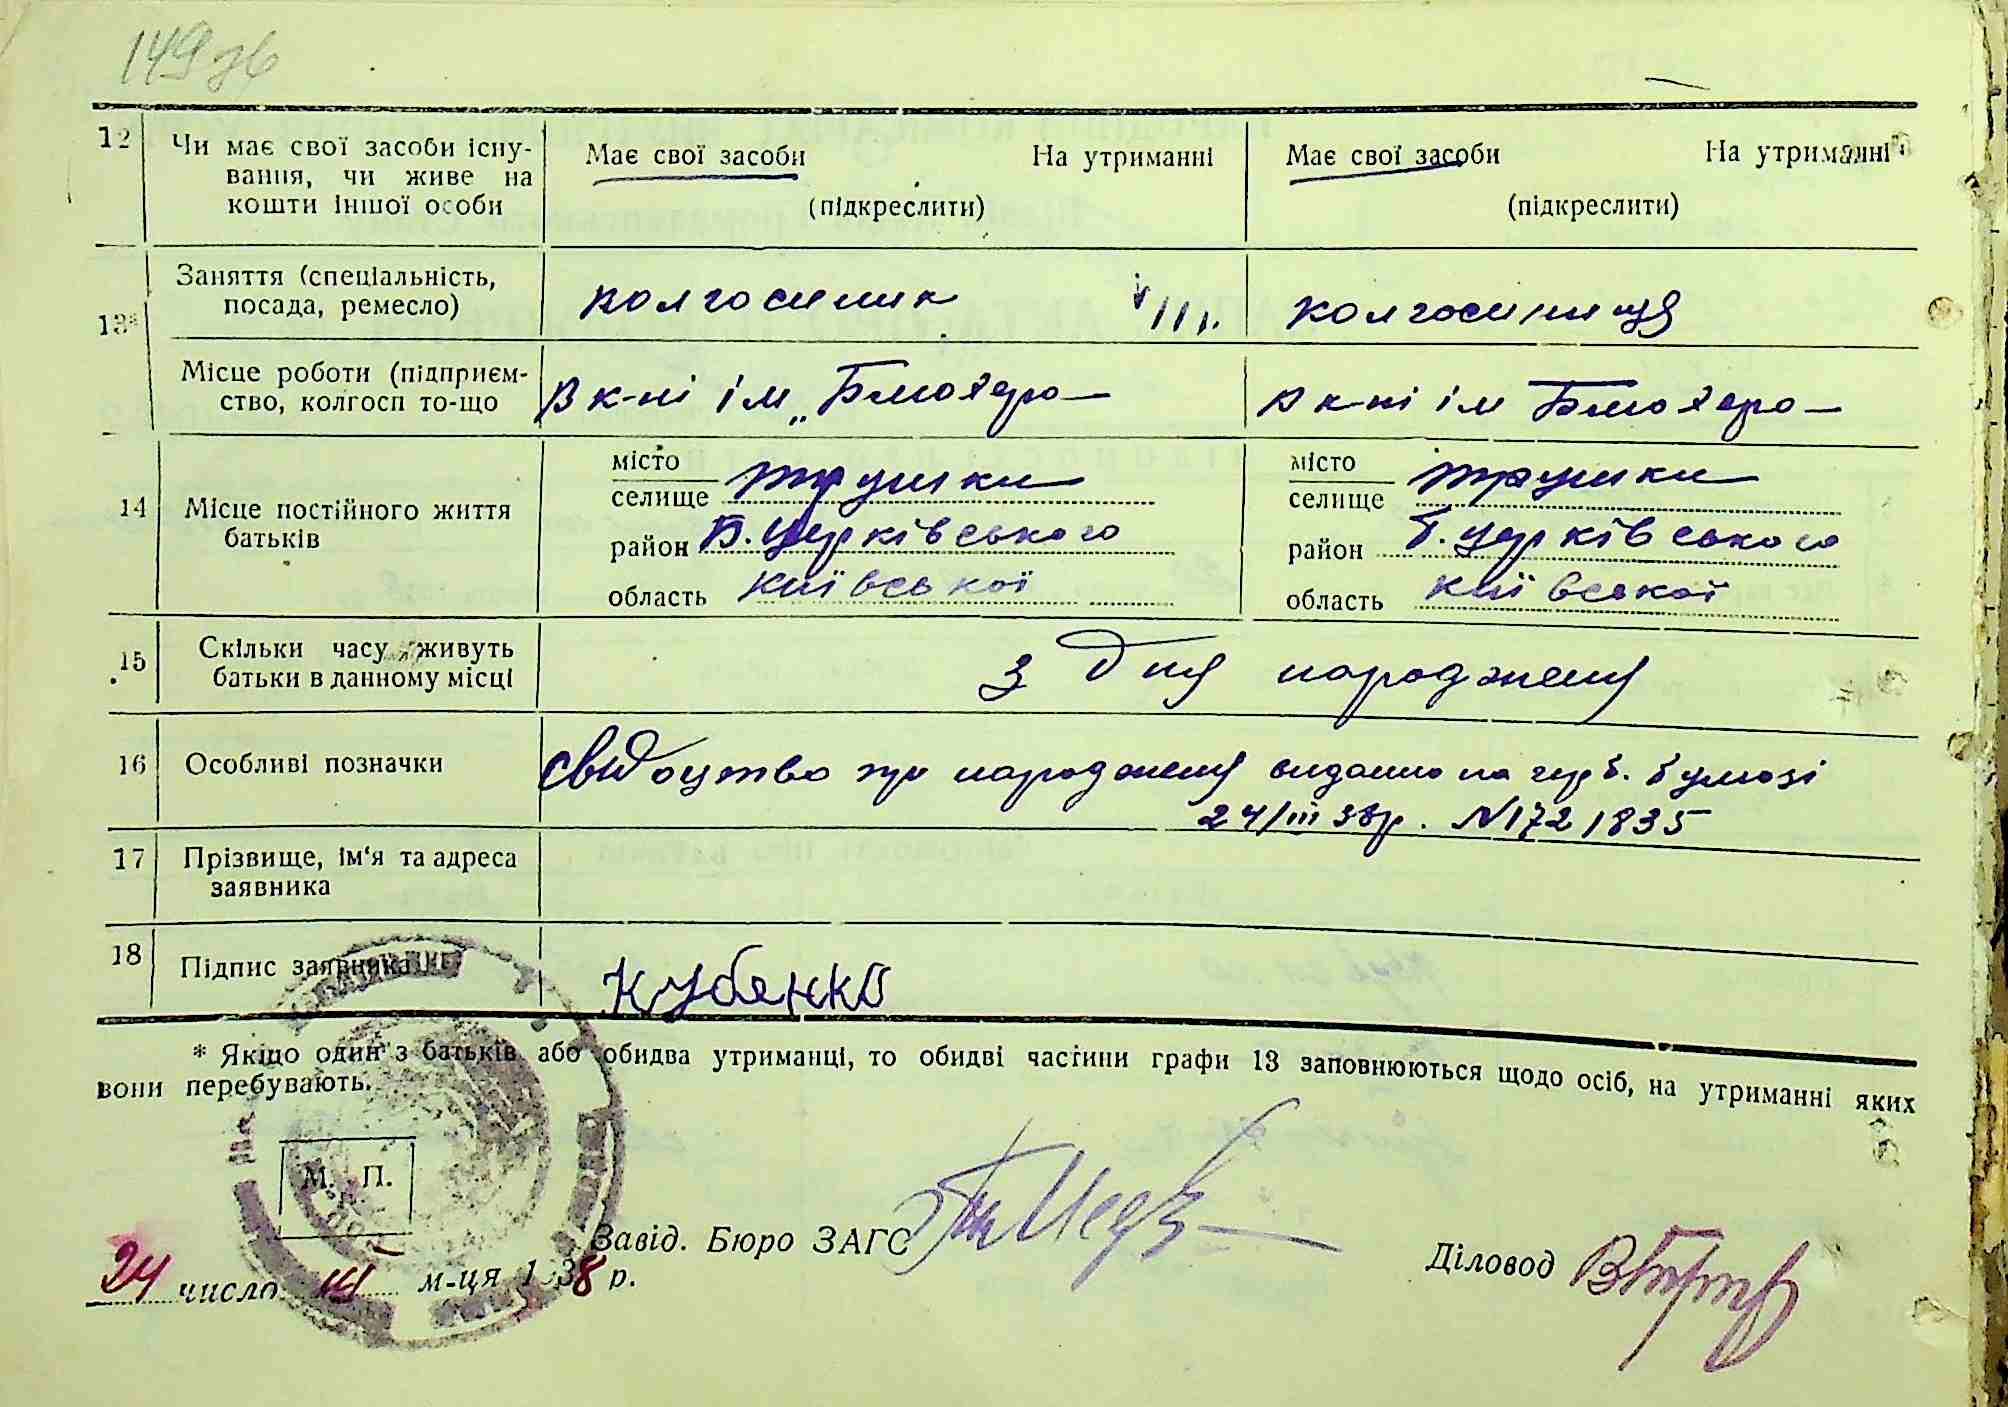 149зв
12 Чи має свої засоби існу-
вання, чи живе на
кошти іншої особи
Має свої засоби На утриманні
(підкреслити)
Має свої засоби На утриманні
(підкреслити)
13* Заняття (спеціальність,
посада, ремесло)
колгоспник
колгоспниця
Місце роботи (підприєм-
ство, колгосп то-що
В к-пі ім „Блюхера
в к-пі ім Блюхера
14 Місце постійного життя
батьків
місто
селище Трушки
район Б. Церківського
область Київської
місто
селище Трушки
район Б. Церківського
область Київської
15 Скільки часу живуть
батьки в данному місці
з дня народженя
16 Особливі позначки
свідоцтво про народженя видано на герб. бумазі
24/III 38р. N1721835
17 Прізвище, ім‘я та адреса
заявника
18 Підпис заявника
Кубенко
* Якщо один з батьків або обидва утриманці, то обидві частини графи 13 заповнюються щодо осіб, на утриманні яких
вони перебувають.
М. П.
Завід. Бюро ЗАГС
Діловод
24 число III м-ця 1938 р.